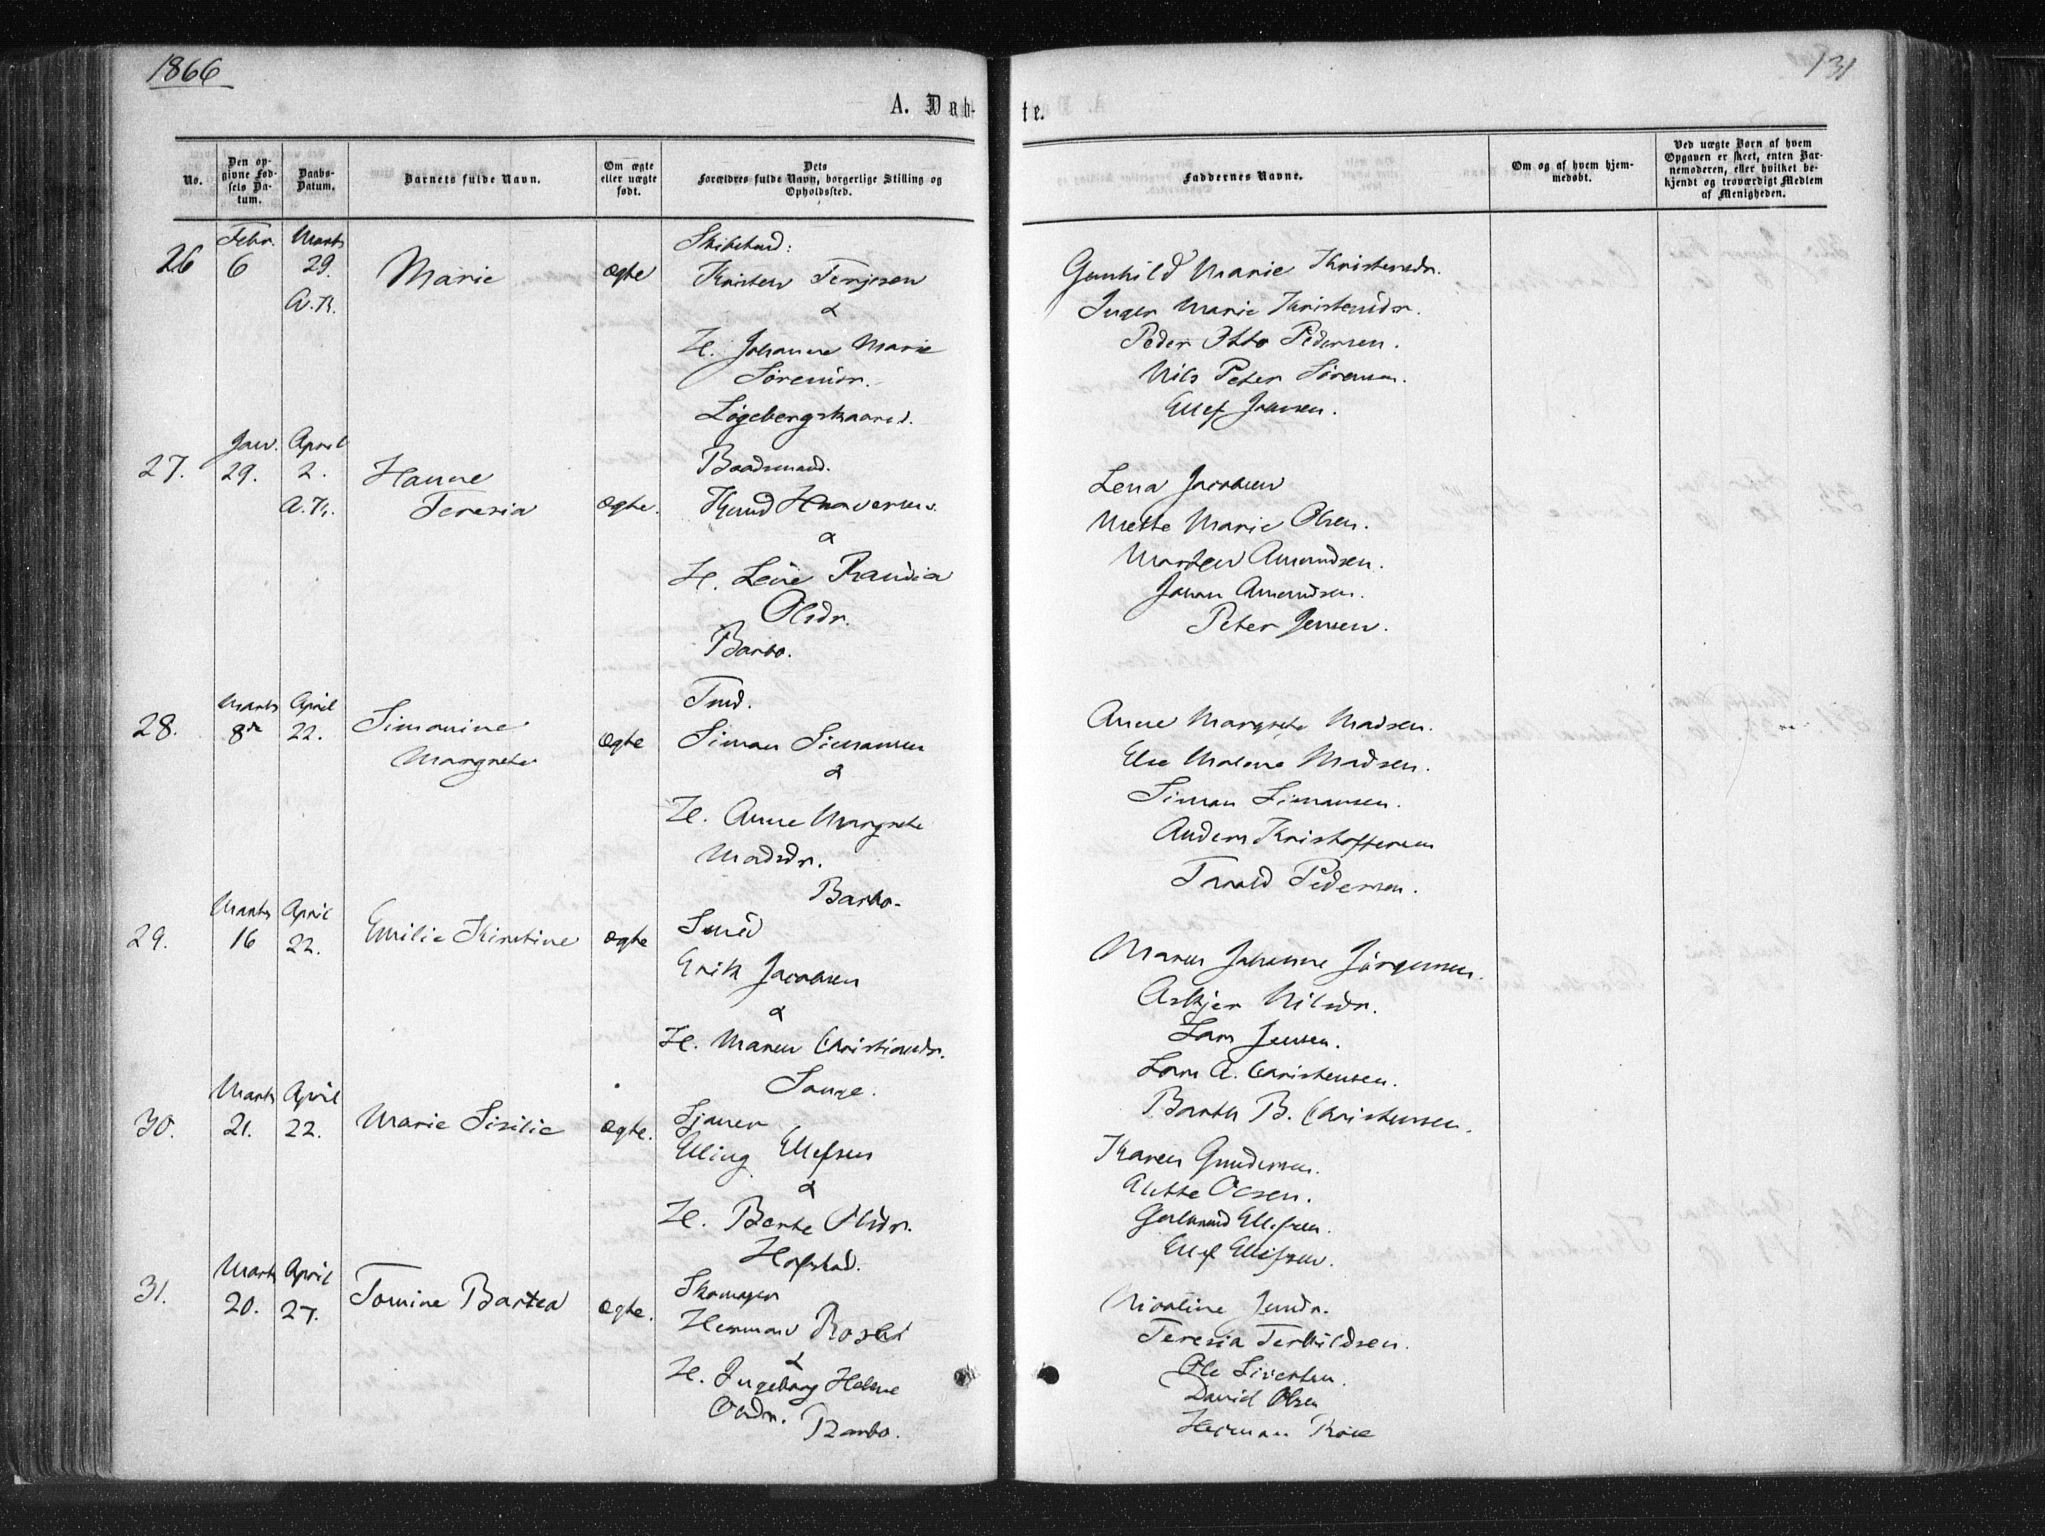 1866
131
A. Døb-
te.
No.
Den op-
givne Fød-
sels Da-
tum.
Daabs-
Datum.
Barnets fulde Navn.
Om ægte
eller uægte
født.
Dets
Forældres fulde Navn, borgerlige Stilling og
Opholdssted.
Faddernes Navne.
Om og af hvem hjem-
medøbt.
Ved uægte Børn af hvem
Opgaven er skeet, enten Bar-
nemoderen, eller hvilket be-
kjendt og troværdigt Medlem
af Menigheden.
26
Febr.
6
Marts
29.
A.K.
Marie
Ægte
Kristen Terjesen
&
H. Johanne Marie
Sørensdr.
Løgebergskaaret.
Gunhild Marie Kristensdr.
Inger Marie Kristensdr.
Peder Otto Pedersen.
Nils Peter Sørensen.
Ellef Jansen.
27.
Jan.
29.
April
2.
A.K.
Hanne
Teresia
Ægte.
Baadsmand.
Knud Haaversens
&
H. Lene Randia
Olsdr.
Barbo.
Lena Jacobsen
Mette Marie Olsen.
Morten Amundsen.
Johan Amundsen.
Peter Jensen.
28.
Marts
8de
April
22.
Simonine
Margrete
Ægte
Tmd.
Simon Simonsen
&
H. Anne Margrete
Madsdr.
Barbo.
Anne Margrete Madsen.
Else Malene Madsen.
Simon Simonsen.
Anders Kristoffersen
Tarald Pedersen.
29.
Marts
16
April
22.
Emilie Kirstine
Ægte
Smed
Erik Jacobsen
&
H. Maren Christiansdr.
Songe.
Maren Johanne Jörgensen.
Askjer Nilsdr.
Lars Jensen.
Lars A. Christensen.
Barth B. Christensen.
30.
Marts
21.
April
22.
Marie Sisilie
Ægte.
Sjauer
Elling Ellefsen
&
H. Berte Olsdr.
Hofstad.
Karen Gundersen.
Alette Olsen.
Ellefsen.
Ellef Ellefsen.
31.
Marts
20.
April
27.
Tomine Bartea
Ægte.
Skomager
Herman Roski
&
H. Ingeborg Helene
Olsdr.
Barbo.
Nicoline Jensdr.
Teresia Terkildsen.
Ole Sivertsen.
David Olsen
Herman